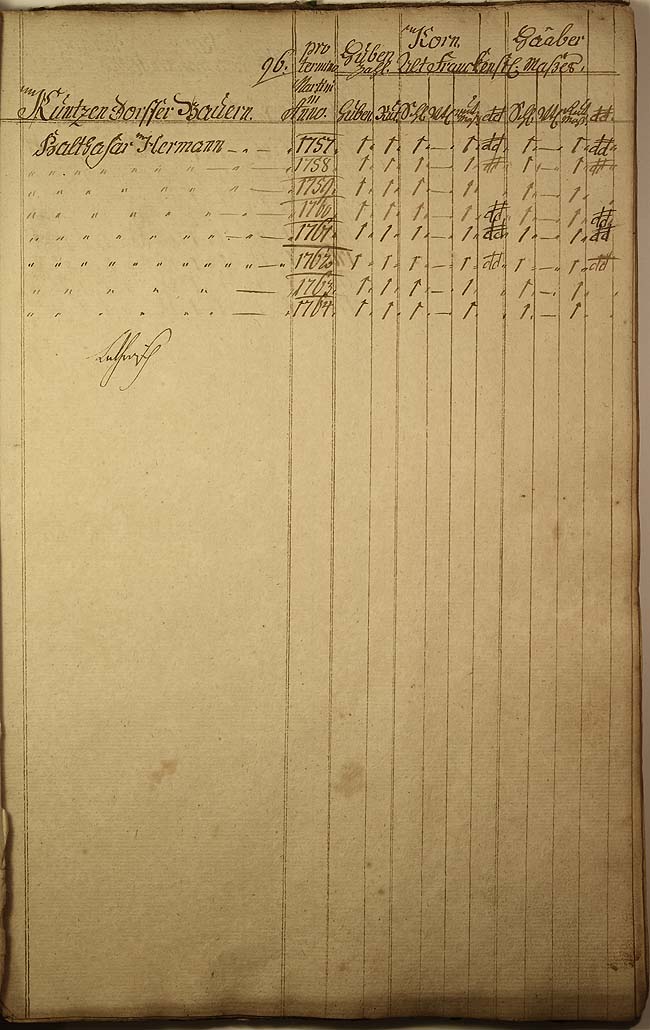 96.
pro termino Martini Anno.
Huben Zahl.
Korn
Haaber
Alt Franckenst. Maßes.
Küntzen Dorffer Bauern. Huben Rut Schl. Vtl. dd Schl. Vtl. dd
Balthasar Hermann — 1757. 1 1 1 — 1 dd 1 — 1 dd
" 1758. 1 1 1 — 1 dd 1 — 1 dd
" — 1759. 1 1 1 — 1 1 — 1
" — 1760. 1 1 1 — 1 dd 1 — 1 dd
" — 1761. 1 1 1 — 1 dd 1 — 1 dd
" — 1762. 1 1 1 — 1 dd 1 — 1 dd
" — 1763. 1 1 1 — 1 1 — 1
" — 1764. 1 1 1 — 1 1 — 1